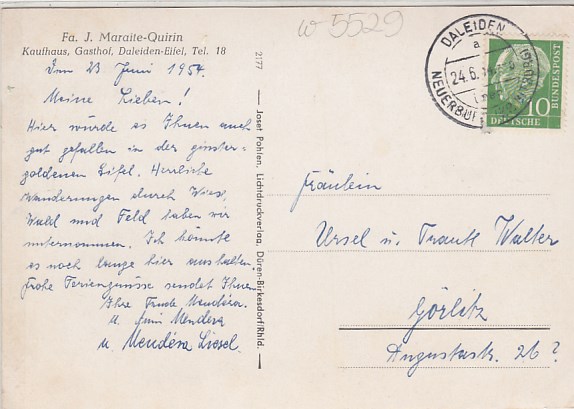 Fa. J. Maraite-Quirin
Kaufhaus, Gasthof, Daleiden-Eifel, Tel. 18
Den 23 Juni 1954.
Meine Lieben!
Hier würde es Ihnen auch
gut gefallen in der ginster-
goldenen Eifel. Herrliche
Wanderungen durch Wiese,
Wald und Feld haben wir
unternommen. Ich könnte
es noch lange hier aushalten.
Frohe Feriengrüsse sendet Ihnen
Ihre Trude Mendera.
u. Mendera
u. Mendéra Liesel.
2177
Josef Pohlen, Lichtdruckverlag, Düren-Birkesdorf/Rhld.
w-5529
DALEIDEN
a
24.6.
NEUERBURG
10
DEUTSCHE
BUNDESPOST
Fräulein
Ursel u. Trautl Walter
Görlitz
Augustastr. 26?